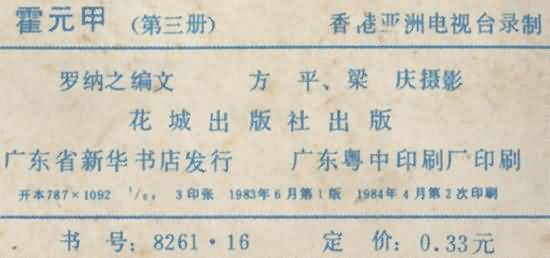 霍元甲 (第三册) 香港亚洲电视台录制
罗纳之编文 方 平、梁 庆摄影
花城出版社出版
广东省新华书店发行 广东粤中印刷厂印刷
开本787×1092 1/64 3印张 1983年6月第1版 1984年4月第2次印刷
书号:8261·16 定价:0.33元